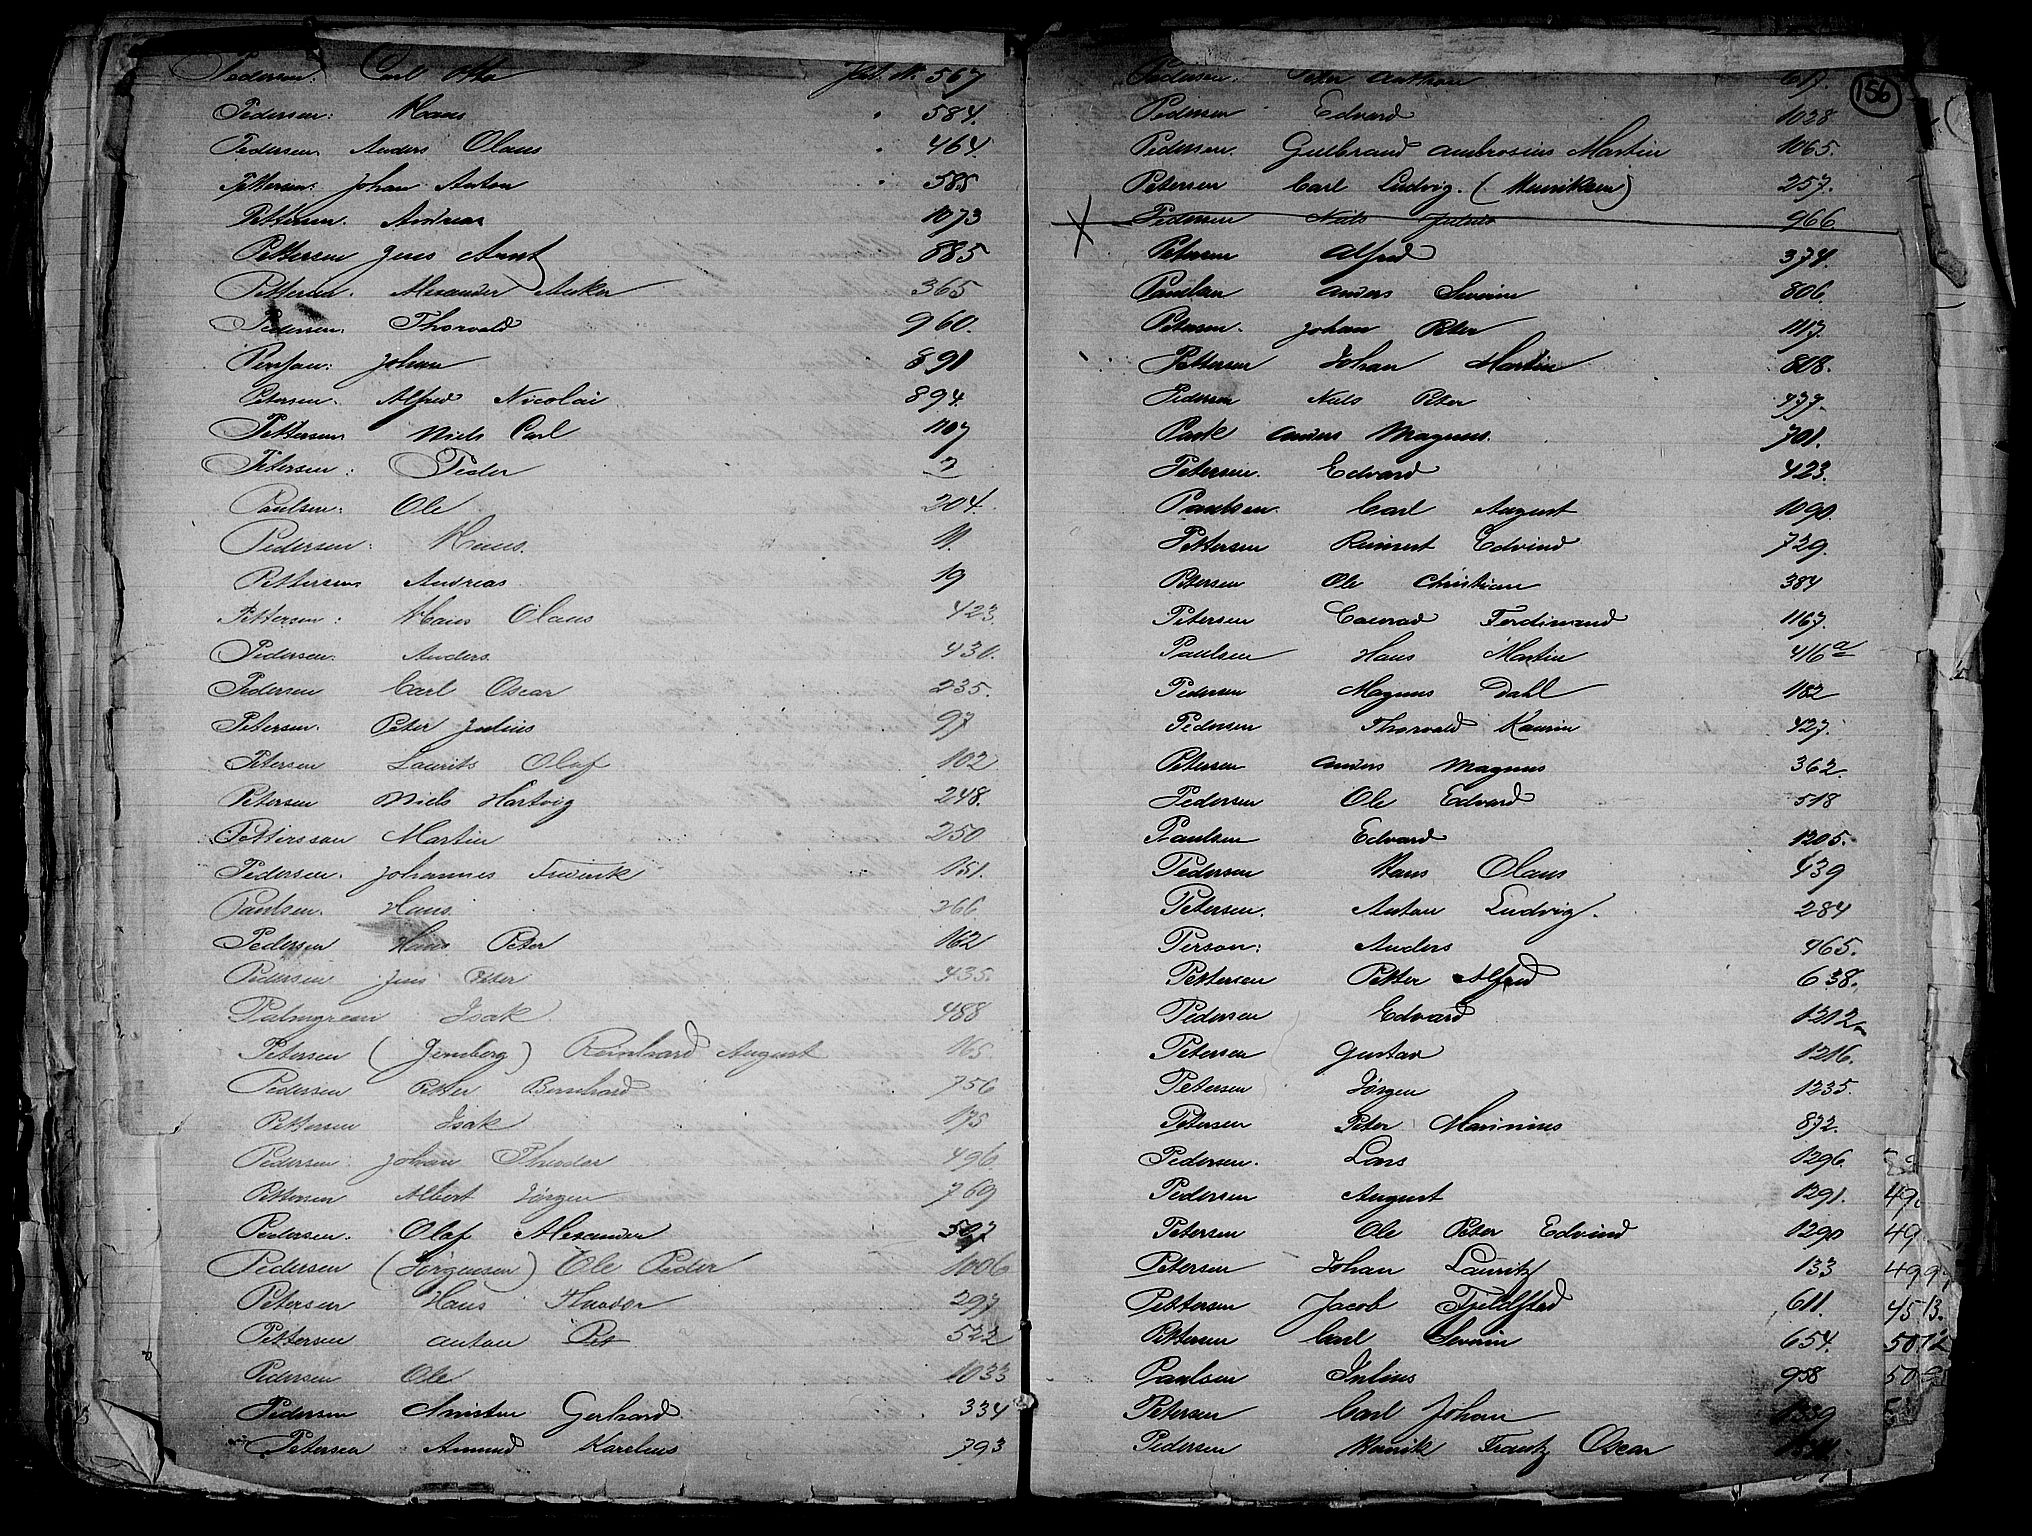 Pedersen: Carl Otto Pat. N. 567
Pedersen: Hans " 584.
Pedersen Anders Olaus " 464.
Pettersen: Johan Anton " 585
Pettersen. Andreas 1073
Pettersen Jens Arnt 885
Pettersen. Alexander Anker 365
Pedersen. Thorvald 960.
Persson: Johan 891
Petersen. Alfred Nicolai 894.
Pettersen Niels Carl 1107
Petersen: Peder 7
Paulsen: Ole 204.
Pedersen: Hans. 11.
Pettersen Andreas. 19
Pettersen: Hans Olaus 423.
Pedersen. Anders. 430.
Pedersen Carl Oscar 235.
Petersen. Peter Julius 97
Petersen Laurits Olaf 102
Petersen Niels Hartvig 248.
Petterssan Martin 250
Pedersen. Johannes Frederik 151.
Paulsen. Hans. 266
Pedersen Hans Peter 162
Pedersen Jens Peter 435.
Palmgreen Isak 488
Petersen (Jernberg) Reinhard August 165.
Pedersen Petter Bernhard 756
Pettersen Isak 175
Pedersen. Johan Theodor 496.
Pettersen Albert Jørgen 769
Pedersen. Olaf Alexander 507
Pedersen (Jørgensen) Ole Peder 1006
Petersen Hans Theodor 297
Pettersen Anton Pet 522
Pedersen Ole 1033
Pedersen Christen Gerhard 334
Petersen Amund Karelius 793
156
Pedersen. Peter Anthon 617.
Pedersen Edvard 1028
Pedersen. Gulbrand Ambrosius Martin 1065.
Petersen Carl Ludvig. (Henriksen) 257.
X Pedersen Niels Julius 966
Petersen Alfred 374.
Paulsen Anders Severin 806
Petersen. Johan Peter 1117.
Pettersen Johan Martin 818.
Pedersen Niels Peter 437.
Park Anders Magnus. 701.
Petersen. Edvard 423.
Paulsen Carl August 1090.
Pettersen Reinert Edvind 729.
Pettersen Ole Christian 384
Petersen Conrad Ferdinand 1167.
Paulsen Hans Martin 416a
Pedersen Magnus Dahl 1182
Pedersen Thorvald Kaurin 427.
Petersen Anders Magnus 362.
Pedersen Ole Edvard 518
Paulsen Edvard 1205.
Pedersen Hans Olaus 439
Petersen. Anton Ludvig. 284
Person: Anders 465.
Pettersen Petter Alfred 638.
Pedersen Edvard 1212
Petersen Gustav 1216.
Petersen Jørgen 1235.
Petersen Peter Marinius 872.
Pedersen. Lars 1296.
Pedersen August 1291. 49.
Petersen Ole Peter Edvind 1290 49
Petersen Johan Lauritz 133 499
Pettersen Jacob Fjeldsted 611. 4513.
Pettersen Carl Severin 654. 5012
Paulsen Julius 958 50
Petersen Carl Johan 1339
Pedersen Henrik Frantz Oscar